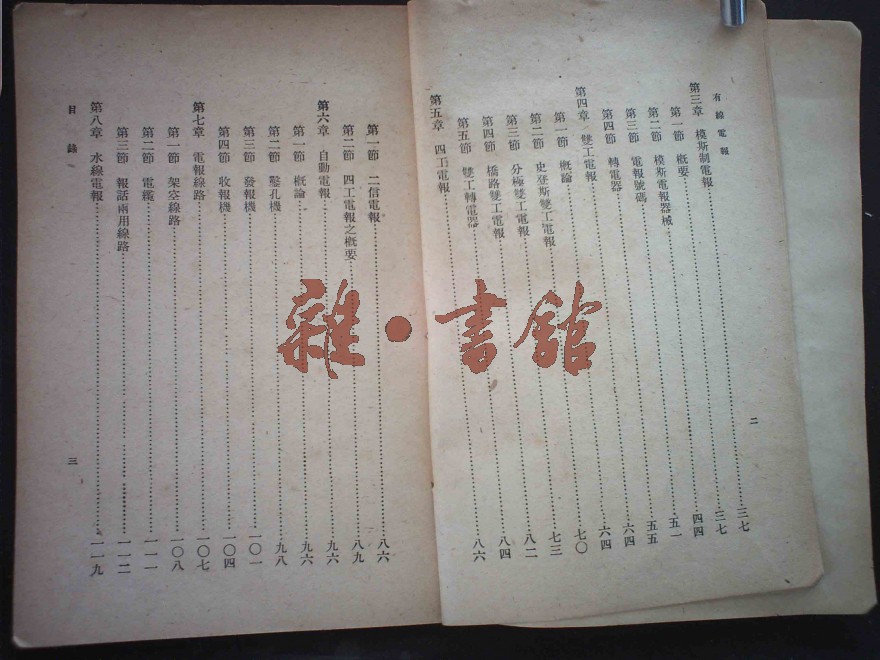 有線電報
第三章 模斯制電報……三七
第一節 概要……三七
第二節 模斯電報器械……四四
第三節 電報號碼……五一
第四節 轉電器……五五
第四章 雙工電報……六四
第一節 概論……六四
第二節 史登斯雙工電報……七〇
第三節 分極雙工電報……七三
第四節 橋路雙工電報……八二
第五節 雙工轉電器……八四
第五章 四工電報……八六
二
第一節 二信電報……八六
第二節 四工電報之概要……八九
第六章 自動電報……九六
第一節 概論……九六
第二節 鑿孔機……九八
第三節 發報機……一〇一
第四節 收報機……一〇四
第七章 電報線路……一〇七
第一節 架空線路……一〇八
第二節 電纜……一一一
第三節 報話兩用線路……一一二
第八章 水線電報……一一九
目錄
三
雜·書館